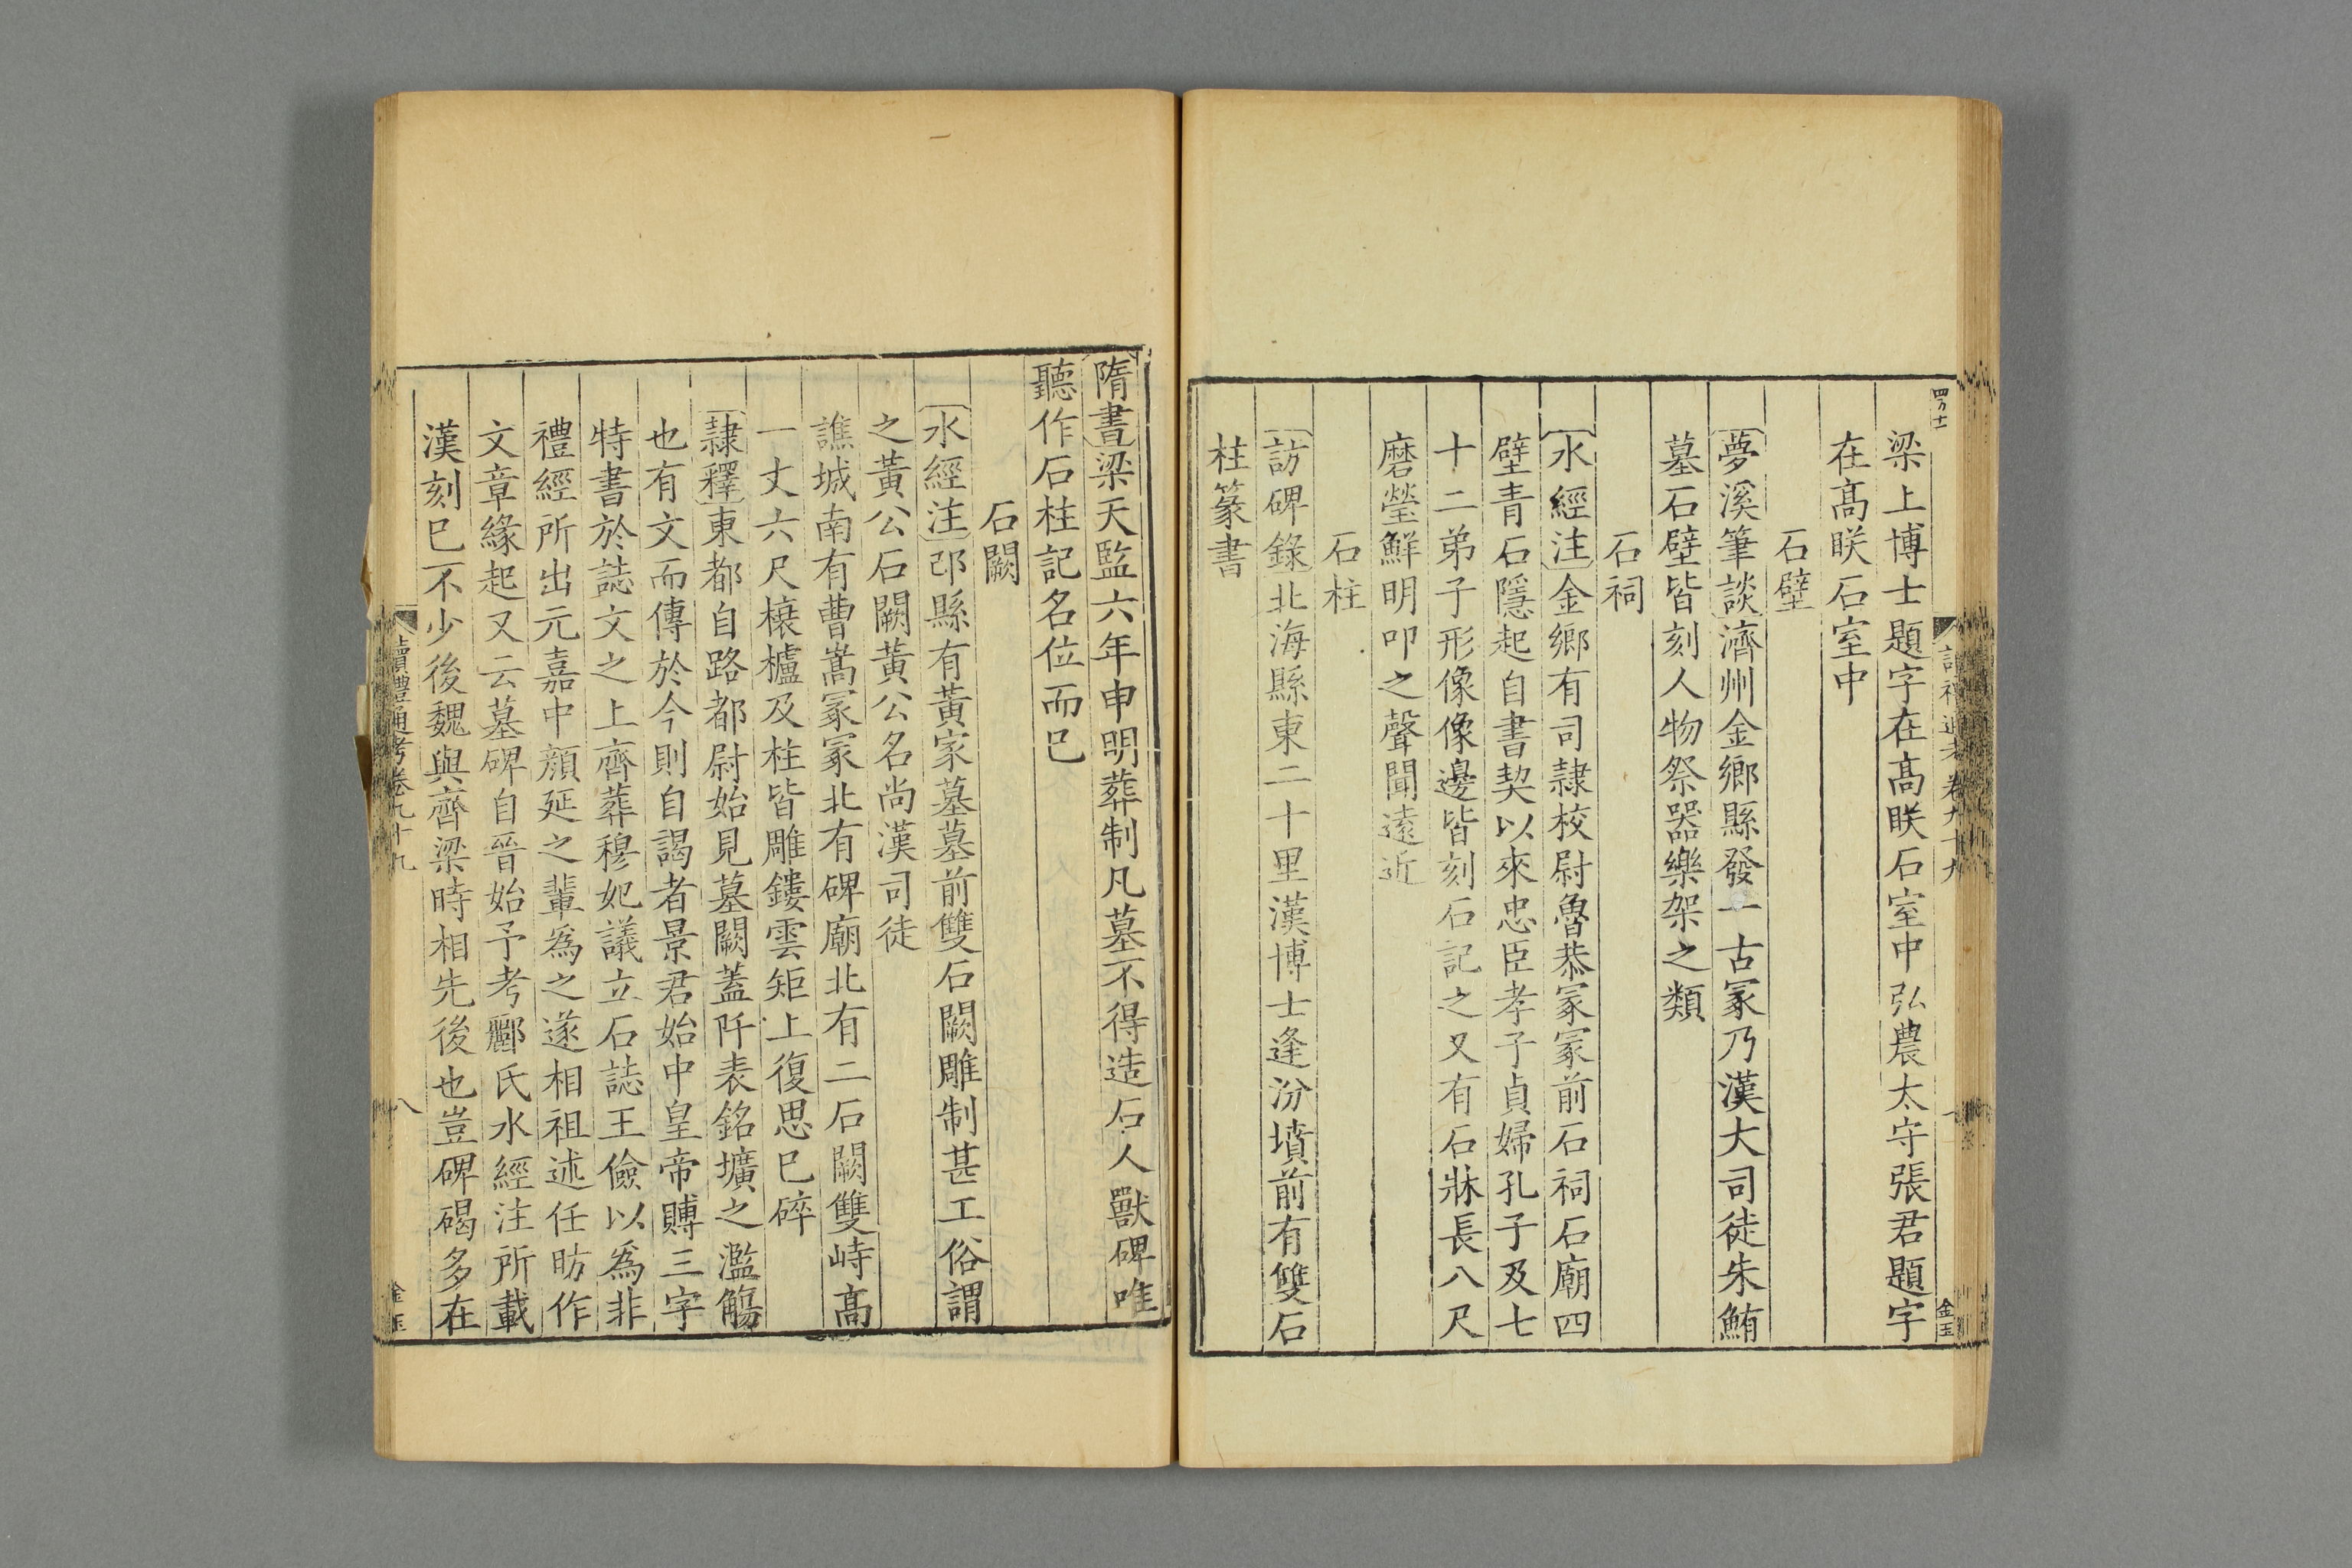 梁上博士題字在髙眹石室中弘農太守張君題字
在髙眹石室中
石壁
夢溪筆談濟州金鄉縣發一古冢乃漢大司徒朱鮪
墓石壁皆刻人物祭器樂架之類
石祠
水經注金鄉有司隷校尉魯恭冢冢前石祠石廟四
壁青石隱起自書契以來忠臣孝子貞婦孔子及七
十二弟子形像像邊皆刻石記之又有石牀長八尺
磨瑩鮮明叩之聲聞遠近
石柱
訪碑錄北海縣東二十里漢博士逢汾墳前有雙石
柱篆書
隋書梁天監六年申明葬制凡墓不得造石人獸碑唯
聽作石柱記名位而已
石闕
水經注邔縣有黃家墓墓前雙石闕雕制甚工俗謂
之黃公石闕黃公名尚漢司徒
譙城南有曹嵩冢冢北有碑廟北有二石闕雙峙髙
一丈六尺榱櫨及柱皆雕鏤雲矩上復思已碎
隷釋東都自路都尉始見墓闕蓋阡表銘壙之濫觴
也有文而傳於今則自謁者景君始中皇帝賻三字
特書於誌文之上齊葬穆妃議立石誌王儉以爲非
禮經所出元嘉中顔延之輩爲之遂相祖述任昉作
文章緣起又云墓碑自晉始予考酈氏水經注所載
漢刻已不少後魏與齊梁時相先後也豈碑碣多在
讀禮通考卷九十九
八
金玉